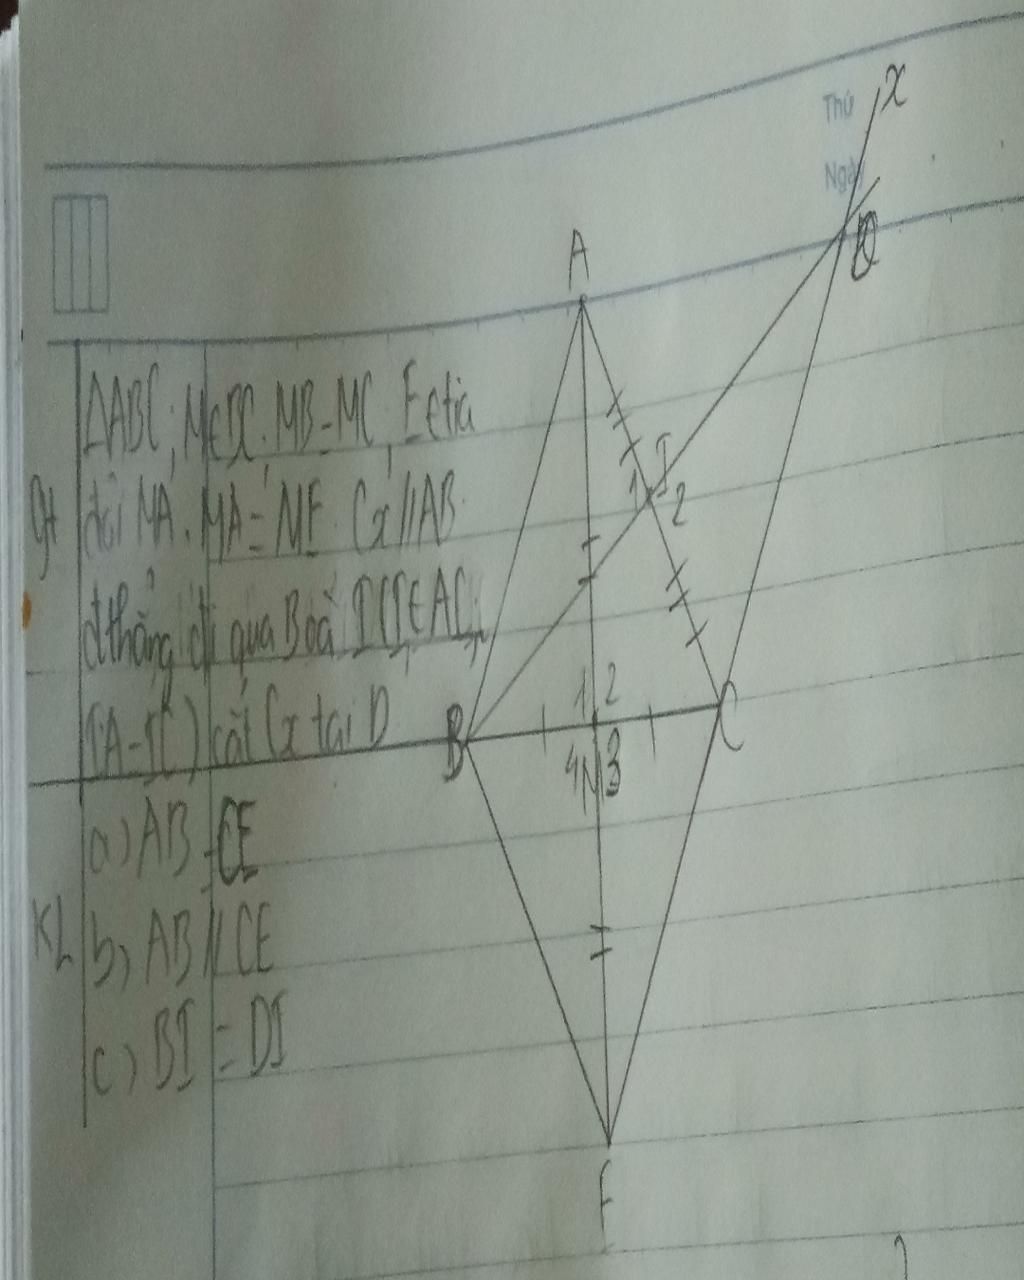 Thứ
x
Ngày
A
D
ΔABC; M∈BC. MB=MC, E∈tia
gt
đối MA. MA=ME. Cx//AB
I
1
2
đthẳng đi qua B và I (I∈AC,
IA=IC) cắt Cx tại D
1 2
B
C
4 M 3
a) AB=CE
KL
b) AB//CE
c) BI=DI
E